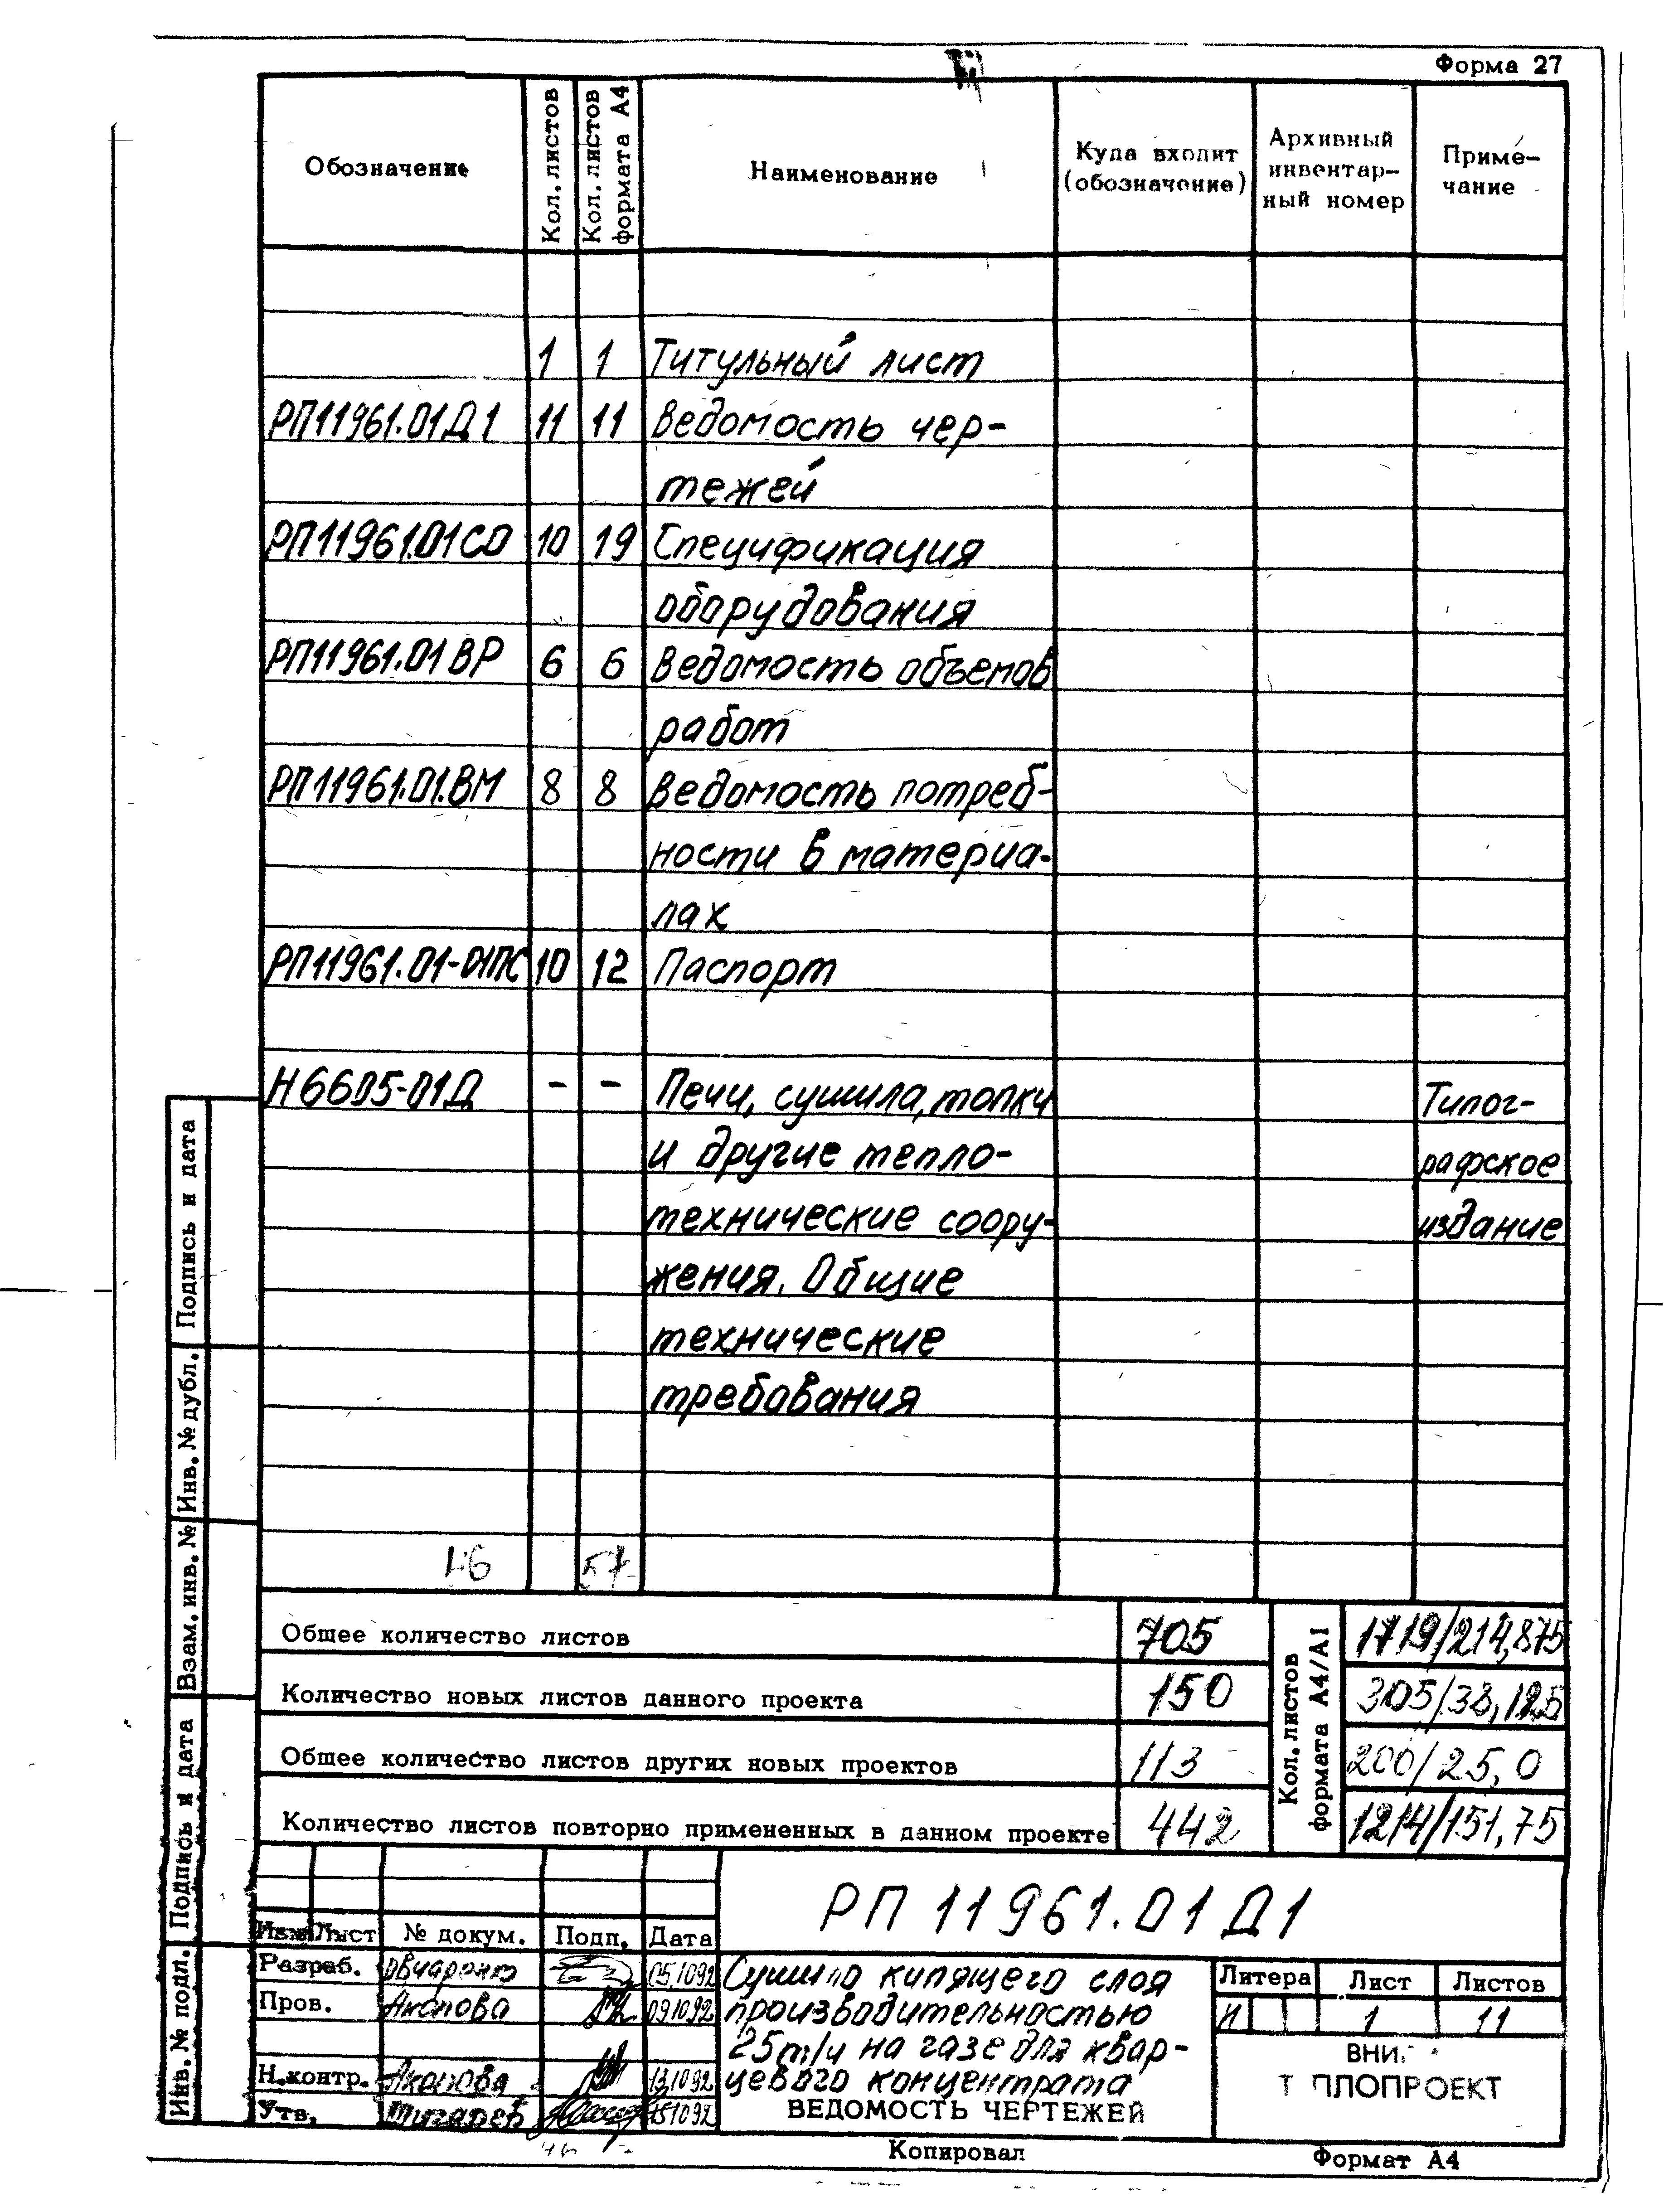 Форма 27
Обозначение
Кол. листов
Кол. листов формата А4
Наименование
Куда входит (обозначение)
Архивный инвентар-ный номер
Приме-чание
1 1 Титульный лист
РП11961.01Д1 11 11 Ведомость чер-
тежей
РП11961.01СО 10 19 Спецификация
оборудования
РП11961.01ВР 6 6 Ведомость объемов
работ
РП11961.01.ВМ 8 8 Ведомость потреб-
ности в материа-
лах
РП11961.01-01ПС 10 12 Паспорт
Н6605-01Д - - Печи, сушила, топки Типог-
и другие тепло- рафское
технические соору- издание
жения. Общие
технические
требования
57
Общее количество листов 705 1719/214,875
Количество новых листов данного проекта 150 305/38,125
Общее количество листов других новых проектов 113 200/25,0
Количество листов повторно примененных в данном проекте 442 1214/151,75
Кол. листов формата А4/А1
РП 11961.01Д1
Изм Лист № докум. Подп. Дата
Разраб. Овчаренко 051092
Пров. Акопова 091092
Н.контр. Акопова 131092
Утв. 151092
Сушило кипящего слоя
производительностью
25т/ч на газе для квар-
цевого концентрата
ВЕДОМОСТЬ ЧЕРТЕЖЕЙ
Литера Лист Листов
И 1 11
ВНИ
Т ПЛОПРОЕКТ
Копировал
Формат А4
Подпись и дата
Инв. № дубл.
Взам. инв. №
Подпись и дата
Инв. № подл.